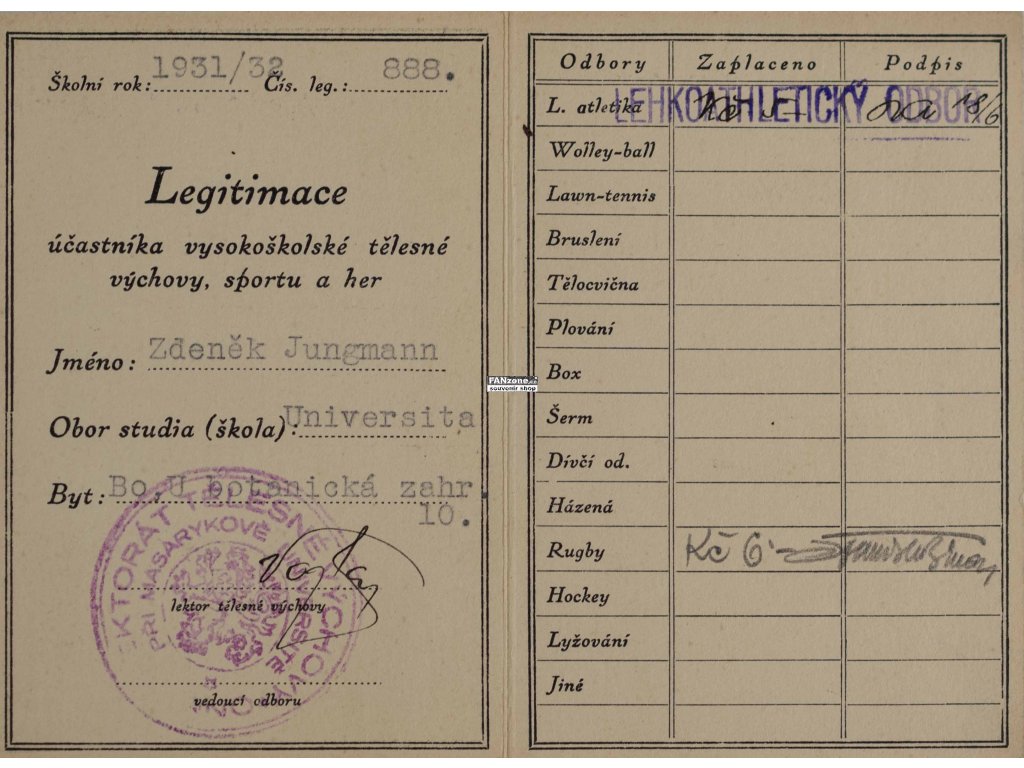 Školní rok: 1931/32 Čís. leg.: 888.
Legitimace
účastníka vysokoškolské tělesné
výchovy, sportu a her
Jméno: Zdeněk Jungmann
Obor studia (škola): Universita
Byt: Bo, U botanická zahr.
10.
lektor tělesné výchovy
vedoucí odboru
PŘI MASARYKOVĚ
FANzone.cz
souvenir shop
Odbory Zaplaceno Podpis
L. atletika LEHKOATHLETICKÝ ODBOR 18/6
Wolley-ball
Lawn-tennis
Bruslení
Tělocvična
Plování
Box
Šerm
Dívčí od.
Házená
Rugby Kč 6·-
Hockey
Lyžování
Jiné